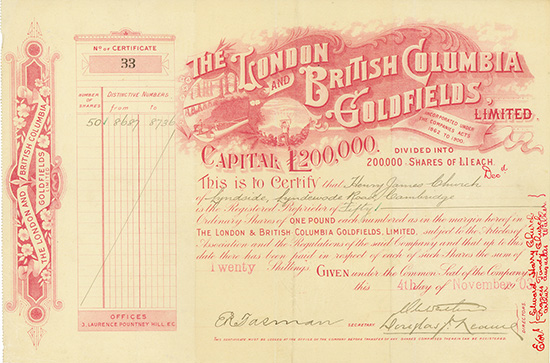 Nº OF CERTIFICATE
33
NUMBER OF SHARES
DISTINCTIVE NUMBERS
from To
50 8687 8736
THE LONDON AND BRITISH COLUMBIA GOLDFIELDS LIMITED
OFFICES
3, LAURENCE POUNTNEY HILL, E.C.
THE LONDON
AND BRITISH COLUMBIA
GOLDFIELDS,
LIMITED.
INCORPORATED UNDER
THE COMPANIES ACTS
1862 TO 1890.
CAPITAL £200,000.
DIVIDED INTO
200000 SHARES OF £1 EACH.
This is to Certify that Henry James Church Decd
of Lyndside, Lyndewode Road, Cambridge
is the Registered Proprietor of Fifty
Ordinary Shares of ONE POUND each numbered as in the margin hereof in
THE LONDON & BRITISH COLUMBIA GOLDFIELDS, LIMITED, subject to the Articles of
Association and the Regulations of the said Company and that up to this
date there has been paid in respect of each of such Shares the sum of
Twenty Shillings. GIVEN under the Common Seal of the Company
this 4th day of November
SECRETARY
DIRECTORS
Douglas
THIS CERTIFICATE MUST BE LODGED AT THE OFFICE OF THE COMPANY BEFORE TRANSFER OF ANY SHARES COMPRISED THEREIN CAN BE REGISTERED.
Edward Henry Church